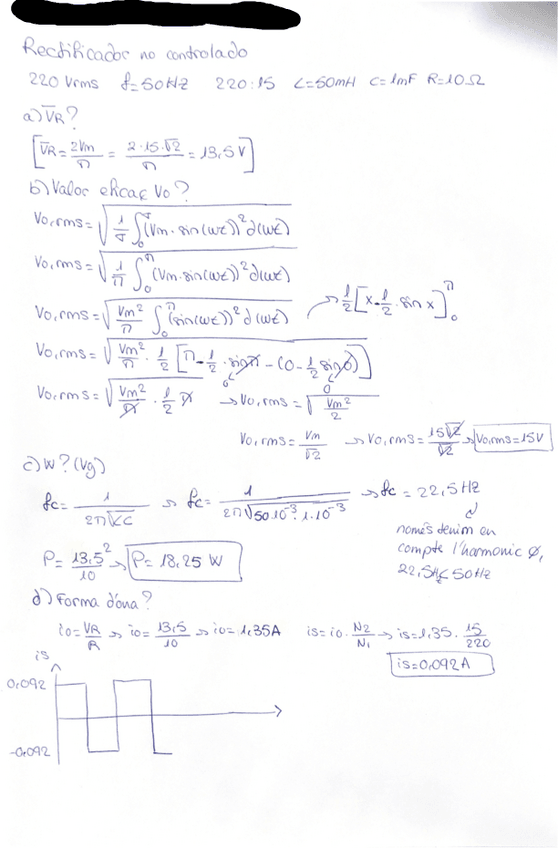 Rectificador no controlado
220 Vrms f=50Hz 220:15 L=50mH C=1mF R=10Ω
a) V̅R?
[V̅R = 2Vm/π = 2·15·√2/π = 13,5 V]
b) Valor eficaç Vo?
Vo,rms = √(1/T ∫₀ᵀ (Vm·sin(wt))² d(wt))
Vo,rms = √(1/π ∫₀^π (Vm·sin(wt))² d(wt))
Vo,rms = √(Vm²/π ∫₀^π (sin(wt))² d(wt)) → 1/2 [x - 1/2 · sin x]₀^π
Vo,rms = √(Vm²/π · 1/2 [π - 1/2 · sin π - (0 - 1/2 sin 0)])
0 0
Vo,rms = √(Vm²/π · 1/2 π) → Vo,rms = √(Vm²/2)
Vo,rms = Vm/√2 → Vo,rms = 15√2/√2 → Vo,rms = 15V
c) W? (Vg)
fc = 1/(2π√LC) → fc = 1/(2π√(50·10⁻³·1·10⁻³)) → fc = 22,5 Hz
només tenim en
compte l'harmonic 0,
22,5Hz < 50Hz
P = 13,5²/10 → P = 18,25 W
d) Forma d'ona?
io = VR/R → io = 13,5/10 → io = 1,35A is = io · N2/N1 → is = 1,35 · 15/220
is = 0,092 A
is
0,092
-0,092